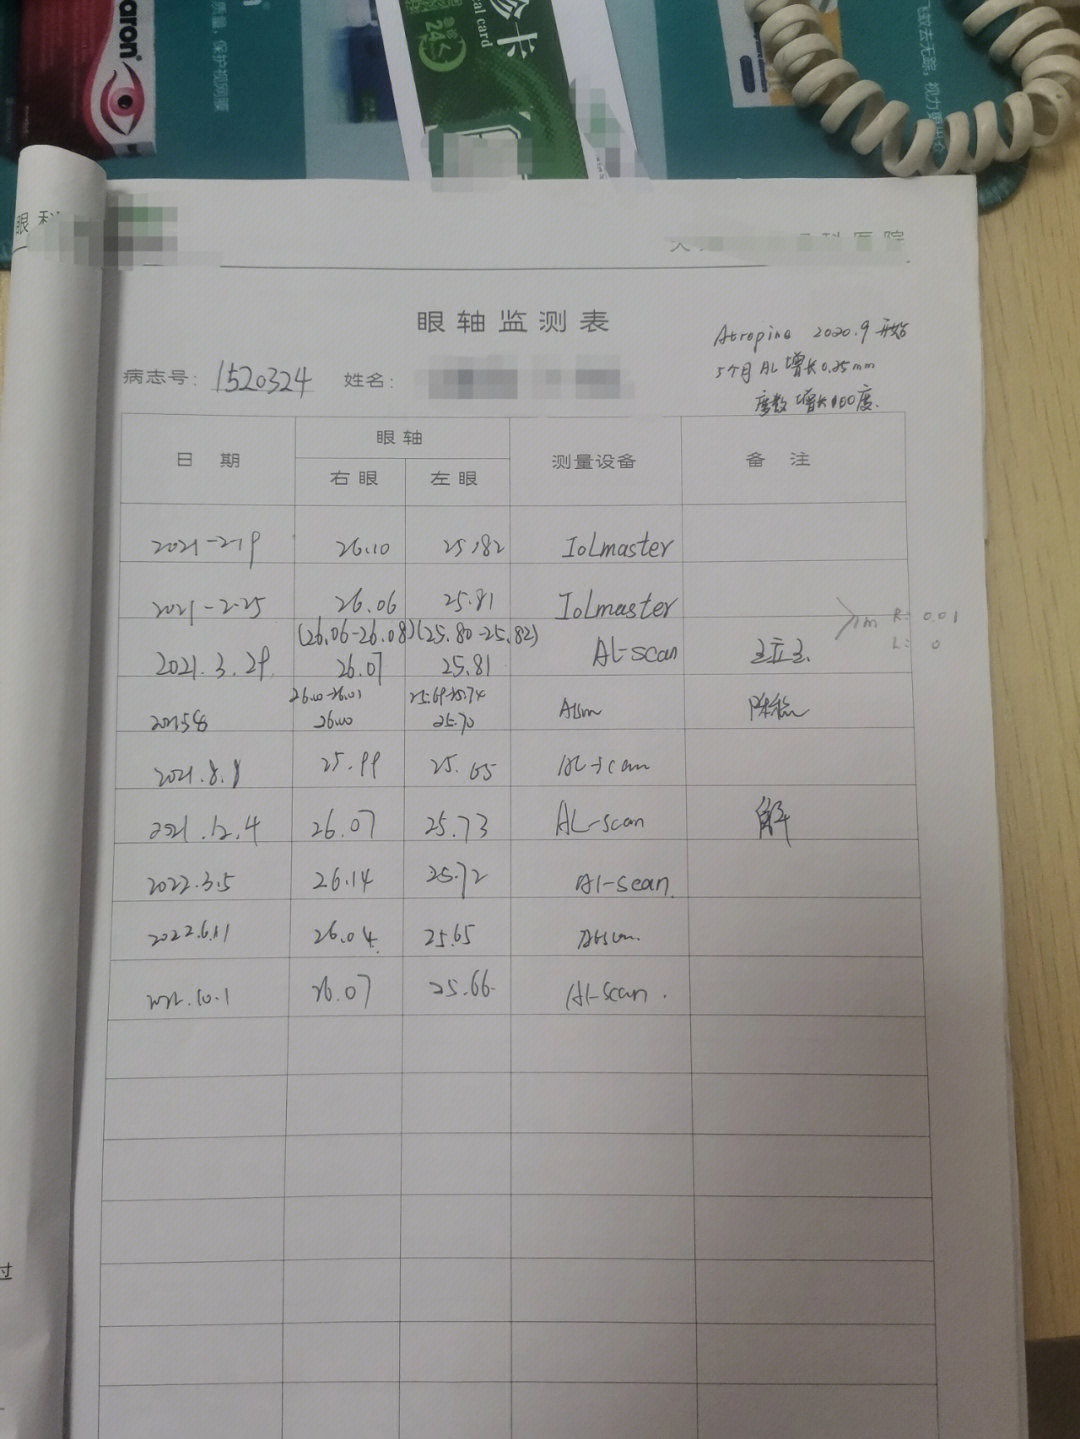 aron
质量，保护视网膜
24
诊卡
al card
眼科
科医院
眼轴监测表
Atropine 2020.9 开始
5个月 AL 增长0.25mm
度数增长100度.
病志号: 1520324 姓名:
日 期 眼轴 测量设备 备 注
右眼 左眼
2021-2-19 26.10 25.82 IoLmaster
2021-2-25 26.06 25.81 IoLmaster
1m R: 0.01
L: 0
(26.06-26.08) (25.80-25.82)
2021.3.29 26.07 25.81 AL-scan
26.00-26.01 25.69-25.74
26.00 25.70
2021.8.8 25.99 25.65 AL-scan
2021.12.4 26.07 25.73 AL-scan
2022.3.5 26.14 25.72 Al-scan.
2022.6.11 26.04. 25.65
10.1 26.07 25.66. Al-scan.
过